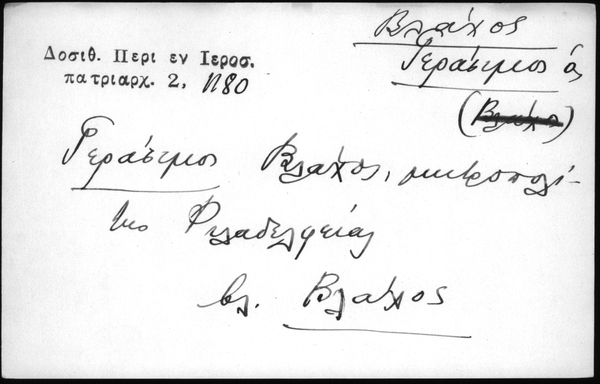 Βλάχος
Δοσιθ. Περι εν Ιεροσ.
Γεράσιμος ά
πατριαρχ. 2, 1180
(Βλάχος)
Γεράσιμος Βλάχος, μητροπολί-
της Φιλαδελφείας
βλ. Βλάχος